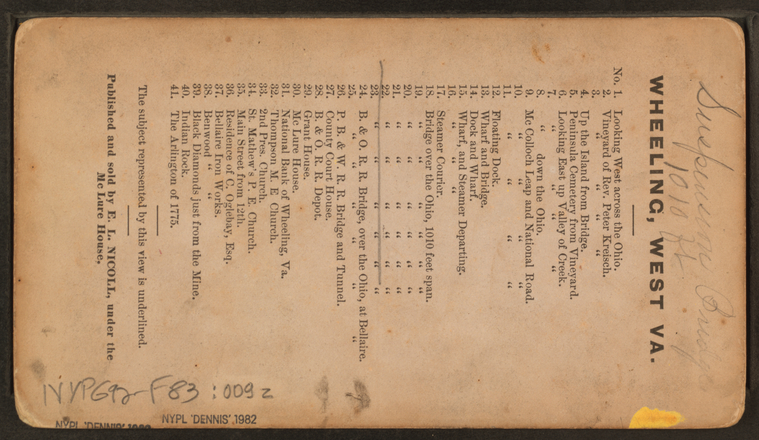 Suspension Bridge
1010 ft.
WHEELING, WEST VA.
No. 1. Looking West across the Ohio.
2. Vineyard of Rev. Peter Kreisch.
3. “ “ “ “
4. Up the Island from Bridge.
5. Peninsula Cemetery from Vineyard.
6. Looking East up Valley of Creek.
7. “ “ “ “
8. “ down the Ohio.
9. Mc Colloch Leap and National Road.
10. “ “ “ “
11. “ “ “ “
12. Floating Dock.
13. Wharf and Bridge.
14. Dock and Wharf.
15. Wharf, and Steamer Departing.
16. “ “
17. Steamer Courier.
18. Bridge over the Ohio, 1010 feet span.
19. “ “ “ “ “ “
20. “ “ “ “ “ “
21. “ “ “ “ “ “
22. “ “ “ “ “ “
23. “ “ “ “ “ “
24. B. & O. R. R. Bridge, over the Ohio, at Bellaire.
25. “ “ “ “ “
26. P. B. & W. R. R. Bridge and Tunnel.
27. County Court House.
28. B. & O. R. R. Depot.
29. Grant House.
30. Mc Lure House.
31. National Bank of Wheeling, Va.
32. Thompson M. E. Church.
33. 2nd Pres. Church.
34. St. Mathew's P. E. Church.
35. Main Street from 12th.
36. Residence of C. Oglebay, Esq.
37. Bellaire Iron Works.
38. Benwood “ “
39. Black Diamonds just from the Mine.
40. Indian Rock.
41. The Arlington of 1775.
The subject represented by this view is underlined.
Published and sold by E. L. NICOLL, under the
Mc Lure House.
NYPG92-F83 :009z
NYPL 'DENNIS' 1982
NYPL 'DENNIS' 1982